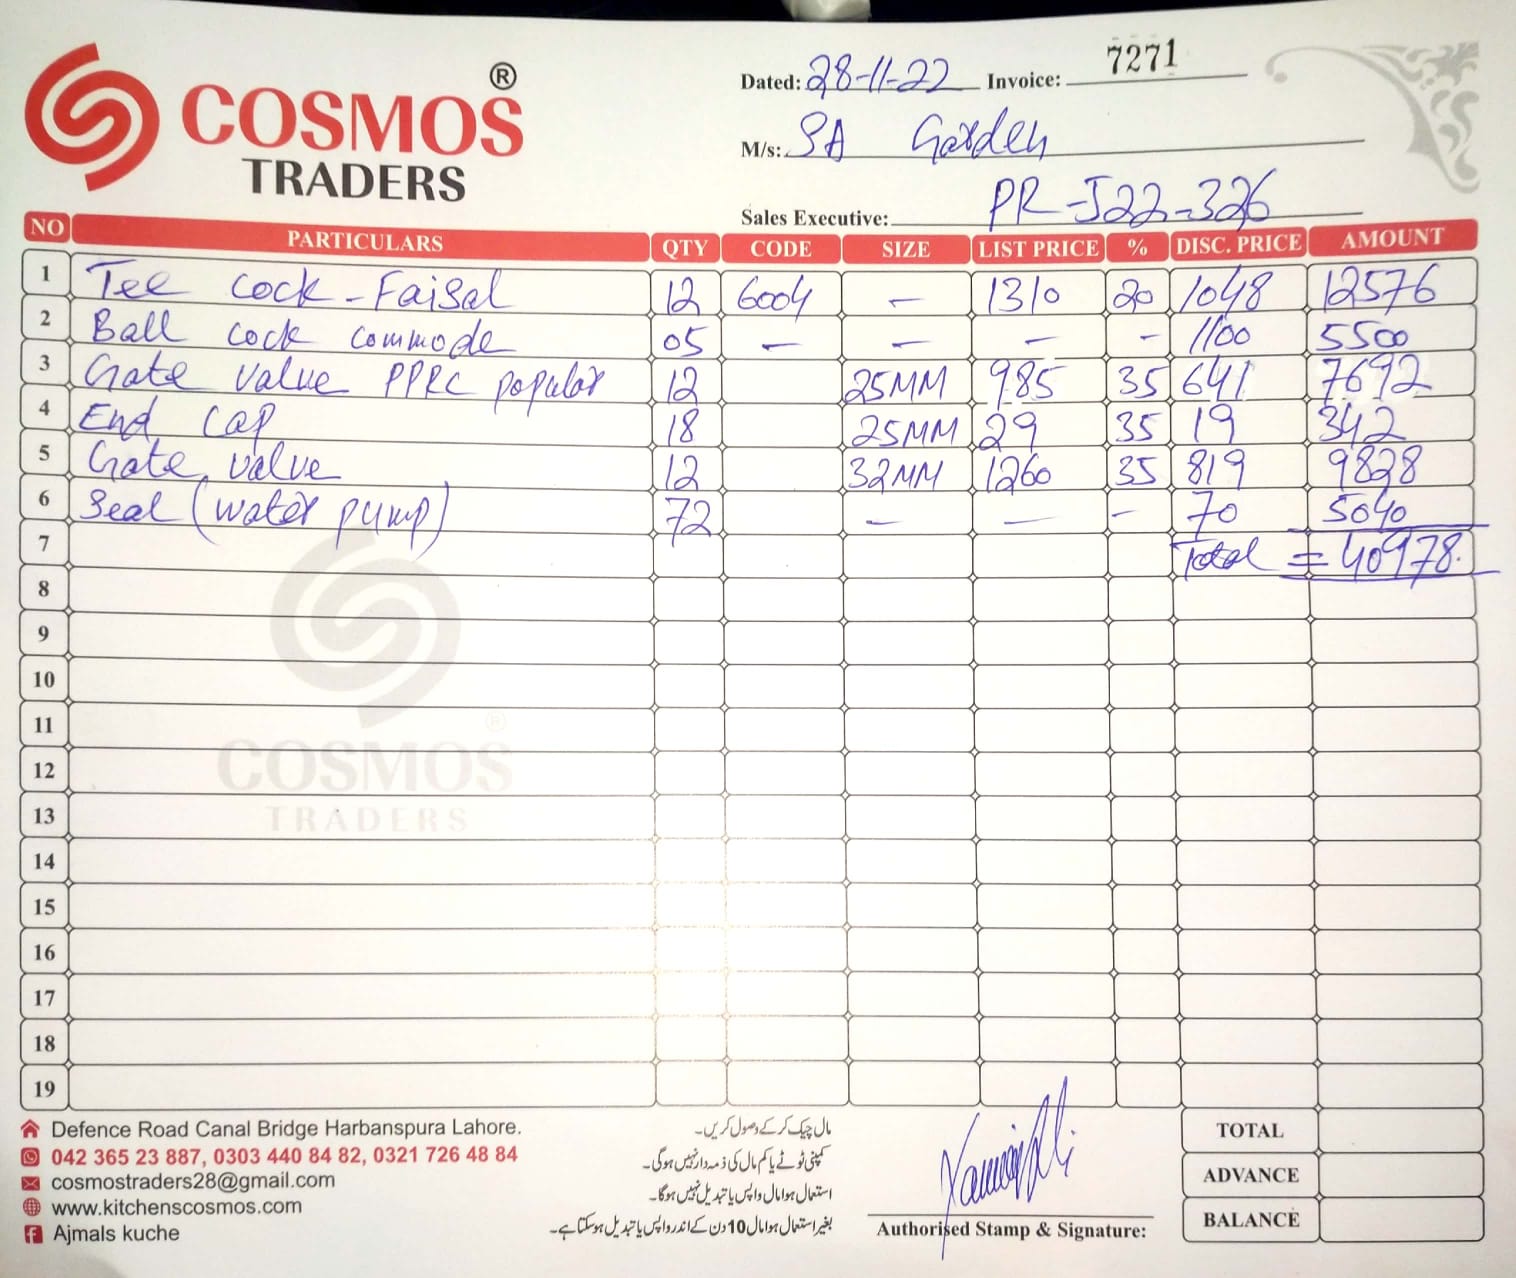 COSMOS ®
TRADERS
Dated: 28-11-22 Invoice: 7271
M/s: SA Garden
Sales Executive: PR-J22-326
NO PARTICULARS QTY CODE SIZE LIST PRICE % DISC. PRICE AMOUNT
1 Tee cock - Faisal 12 6004 – 1310 20 1048 12576
2 Ball cock commode 05 – – – – 1100 5500
3 Gate value PPRC popular 12 25MM 985 35 641 7692
4 End cap 18 25MM 29 35 19 342
5 Gate valve 12 32MM 1260 35 819 9828
6 Seal (water pump) 72 – – – 70 5040
7 Total = 40978.
8
9
10
11
12
13
14
15
16
17
18
19
COSMOS ®
TRADERS
Defence Road Canal Bridge Harbanspura Lahore.
042 365 23 887, 0303 440 84 82, 0321 726 48 84
cosmostraders28@gmail.com
www.kitchenscosmos.com
Ajmals kuche
مال چیک کر کے وصول کریں۔
کمپنی ٹوٹے یا کم مال کی ذمہ دار نہیں ہوگی۔
استعمال ہوا مال واپس یا تبدیل نہیں ہوگا۔
بغیر استعمال ہوا مال 10 دن کے اندر واپس یا تبدیل ہوسکتا ہے۔
Authorised Stamp & Signature:
TOTAL
ADVANCE
BALANCE